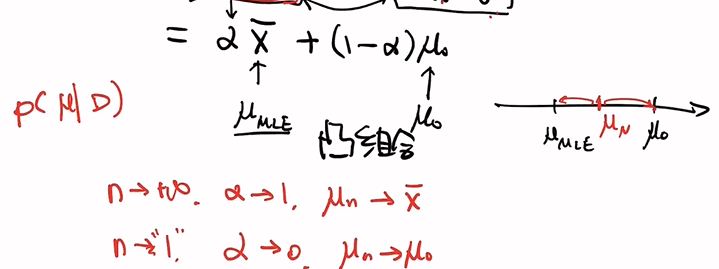 = α x̄ + (1-α)μ₀
p(μ|D)
μ_MLE μ₀
凸组合
μ_MLE μ_N μ₀
n→+∞. α→1, μₙ→x̄
n→"1", α→0, μₙ→μ₀